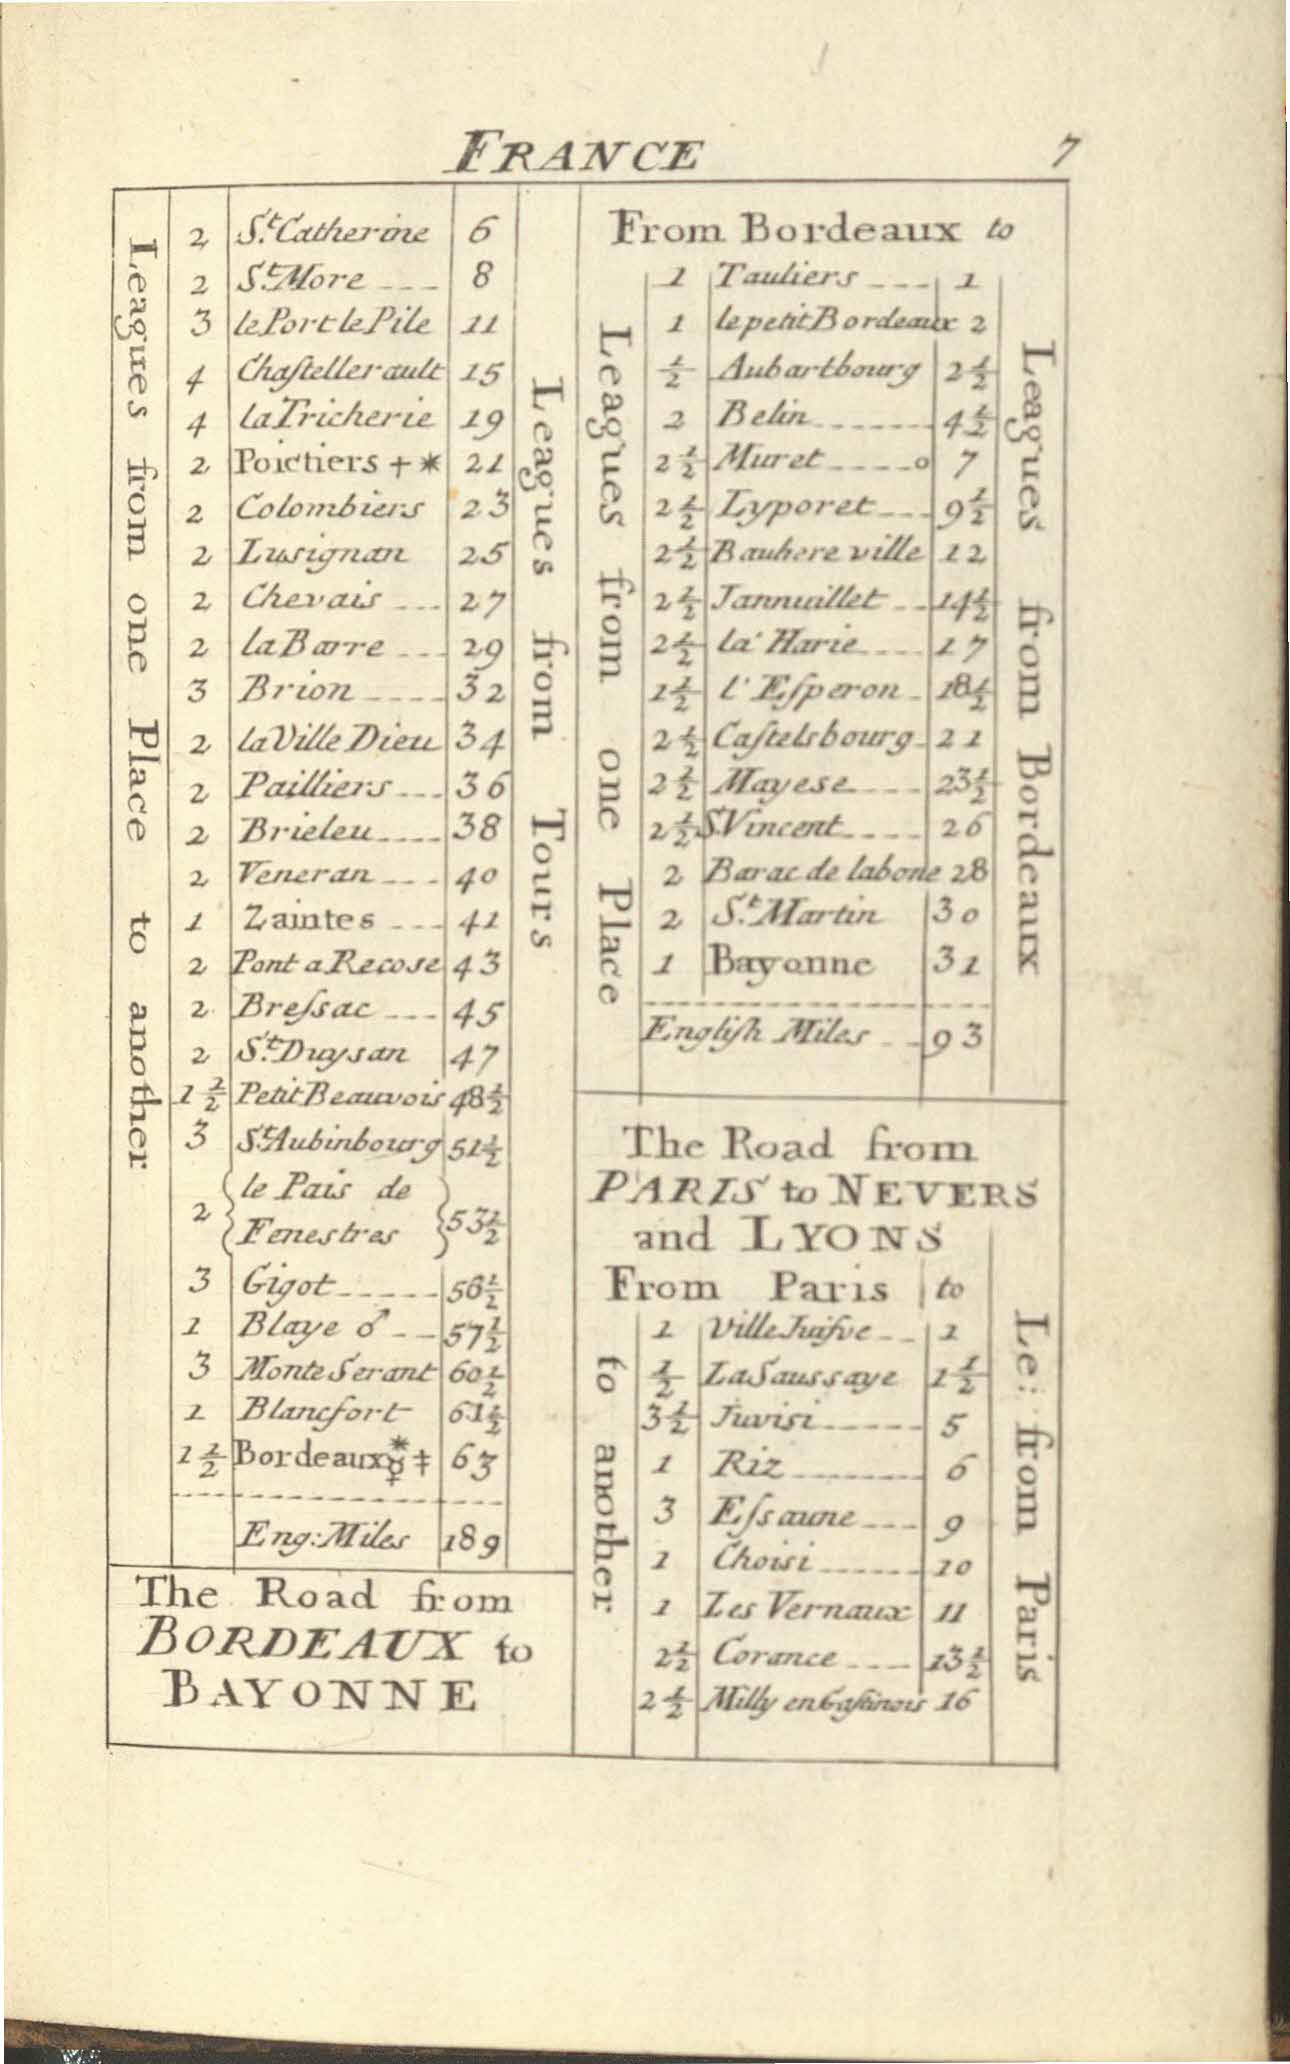 FRANCE 7
Leagues from one Place to another
2 St. Catherine 6
2 St. More 8
3 le Port le Pile 11
4 Chaſtellerault 15
4 la Tricherie 19
2 Poictiers + * 21
2 Colombiers 23
2 Lusignan 25
2 Chevais 27
2 la Barre 29
3 Brion 32
2 la Ville Dieu 34
2 Pailliers 36
2 Brieleu 38
2 Veneran 40
1 Zaintes 41
2 Pont a Recose 43
2 Breſsac 45
2 St. Duysan 47
1 1/2 Petit Beauvois 48 1/2
3 St. Aubinbourg 51 1/2
2 { le Pais de
Fenestres } 53 1/2
3 Gigot 56 1/2
1 Blaye ♂ 57 1/2
3 Monte Serant 60 1/2
1 Blancfort 61 1/2
1 1/2 Bordeaux * ☿ ‡ 63
Eng: Miles 189
Leagues from Tours
The Road from
BORDEAUX to
BAYONNE
From Bordeaux to
Leagues from one Place to another
1 Tauliers 1
1 le petit Bordeaux 2
1/2 Aubartbourg 2 1/2
2 Belin 4 1/2
2 1/2 Muret o 7
2 1/2 Lyporet 9 1/2
2 1/2 Bauhere ville 12
2 1/2 Jannuillet 14 1/2
2 1/2 la Harie 17
1 1/2 l'Eſperon 18 1/2
2 1/2 Caſtelsbourg 21
2 1/2 Mayese 23 1/2
2 1/2 S. Vincent 26
2 Barac de labone 28
2 St. Martin 30
1 Bayonne 31
Engliſh Miles 93
Leagues from Bordeaux
The Road from
PARIS to NEVERS
and LYONS
From Paris to
1 Ville Juifve 1
1/2 La Saussaye 1 1/2
3 1/2 Juvisi 5
1 Riz 6
3 Eſsaune 9
1 Choisi 10
1 Les Vernaux 11
2 1/2 Corance 13 1/2
2 1/2 Milly en Gaſtinois 16
Le: from Paris